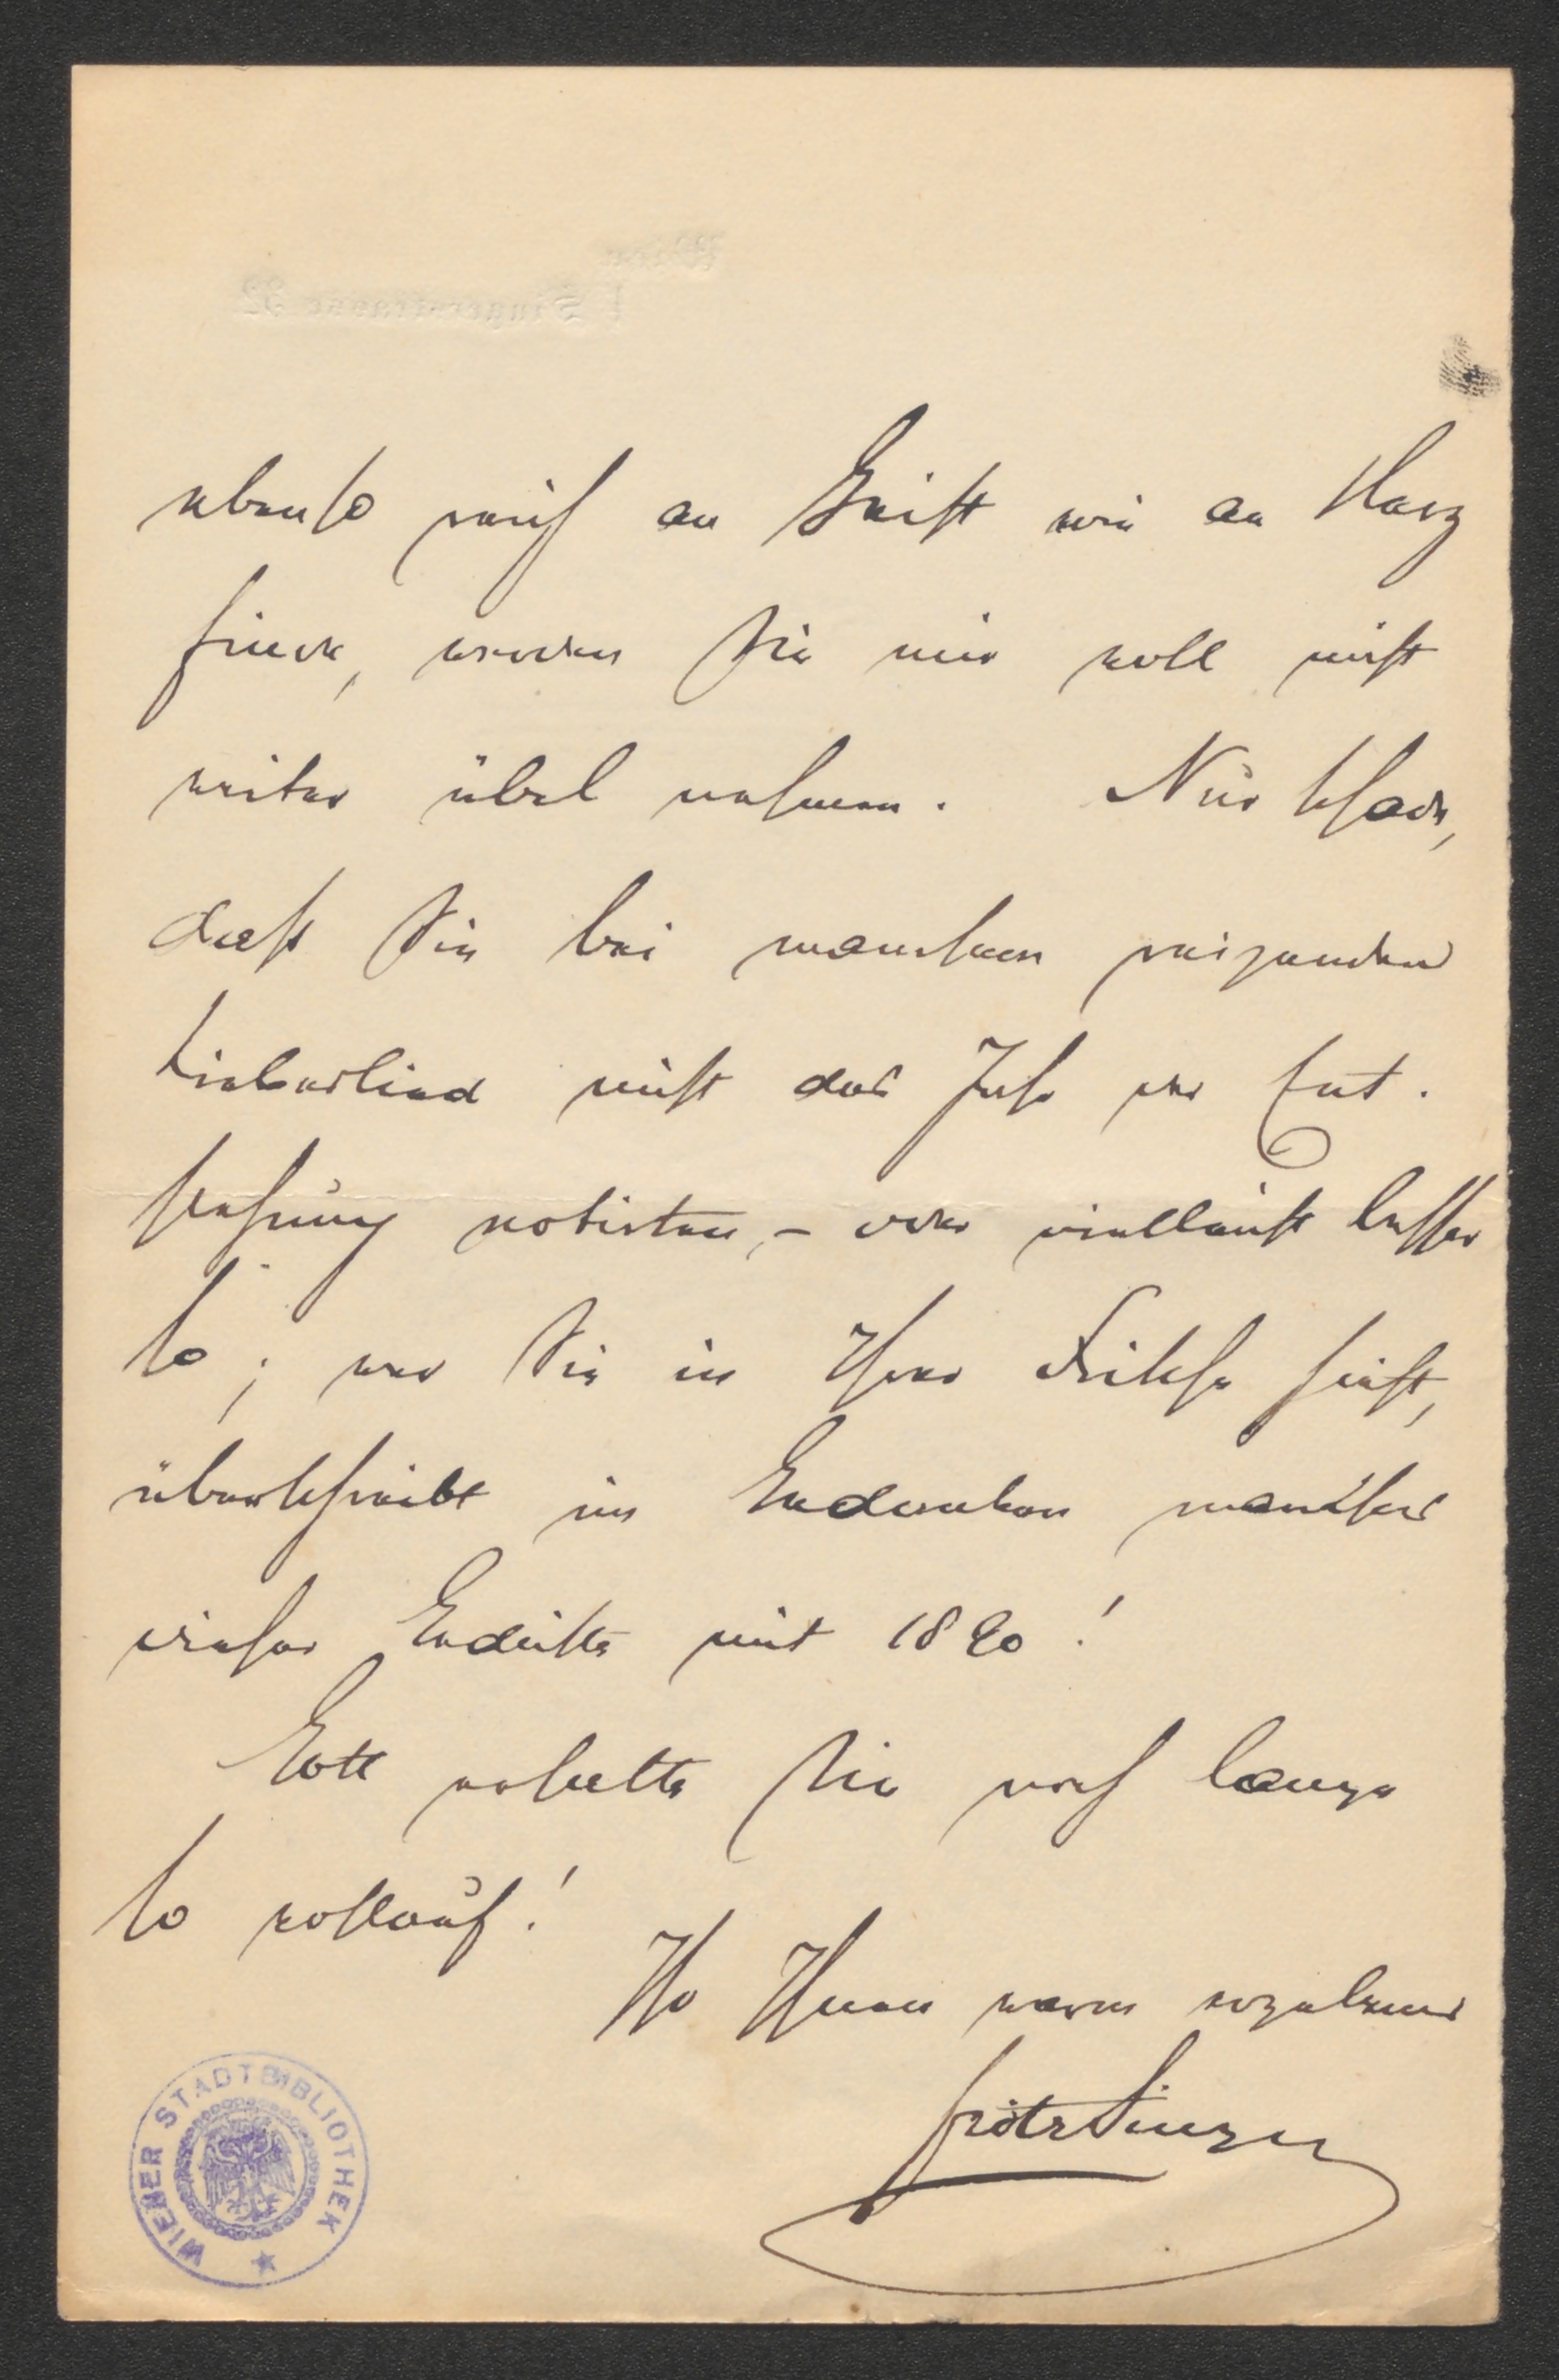 Wien
I. Singerstrasse 32
ebenso reich an Geist wie an Herz
finde, werden Sie mir wol nicht
weiter übel nehmen. Nur schade,
daß Sie bei manchem reizenden
Liebeslied nicht das Jahr der Ent-
stehung notirten, – oder vielleicht besser
so; wer Sie in Ihrer Frische sieht,
überschreibt im Gedenken manches
dieser Gedichte mit 1890!
Gott erhalte Sie noch lange
so wohlauf!
Ihr Ihnen warm ergebener
WIENER STADTBIBLIOTHEK